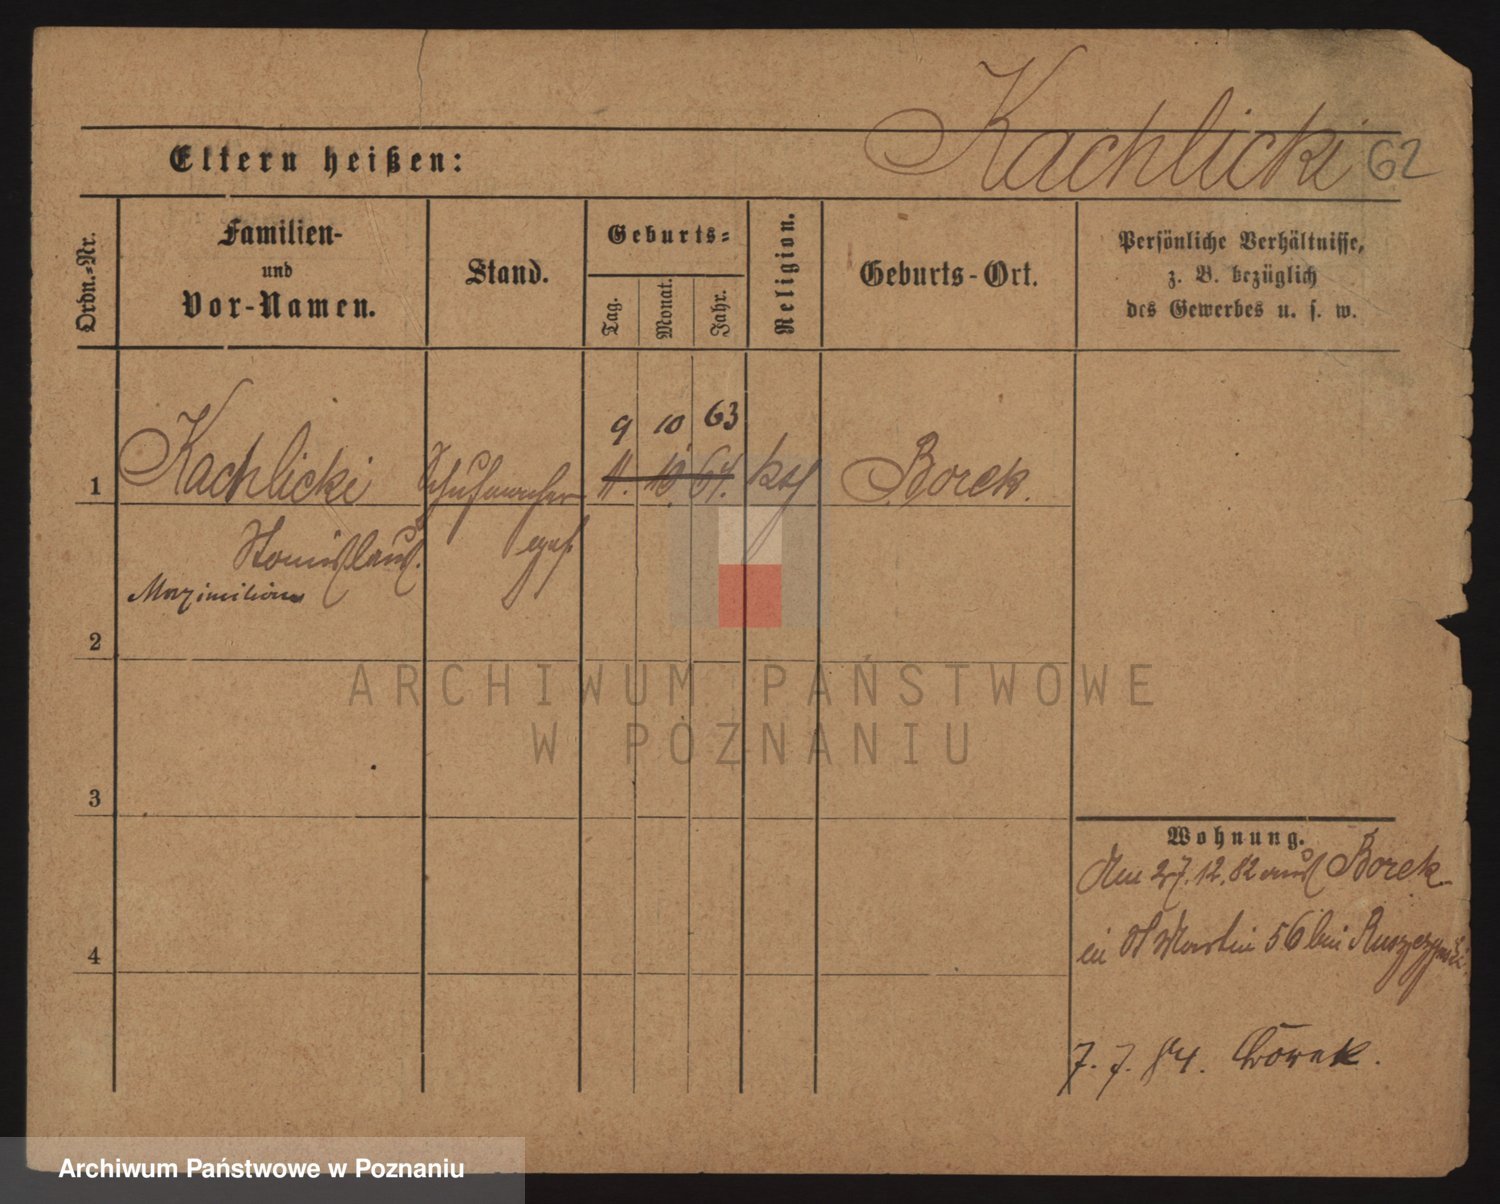 Kachlicki 62
Eltern heißen:
Ordn.-Nr.
Familien-
und
Vor-Namen.
Stand.
Geburts-
Tag.
Monat.
Jahr.
Religion.
Geburts-Ort.
Persönliche Verhältnisse,
z. B. bezüglich
des Gewerbes u. s. w.
9 10 63
1 Kachlicki Schuhmacher 11. 10. 64. kth Borek.
Stanislaus.
Maximilian
2
ARCHIWUM PAŃSTWOWE
W POZNANIU
3
Wohnung.
Am 27.12.82 aus Borek
in St Martin 56 bei
4
7. 7. 84. Borek.
Archiwum Państwowe w Poznaniu